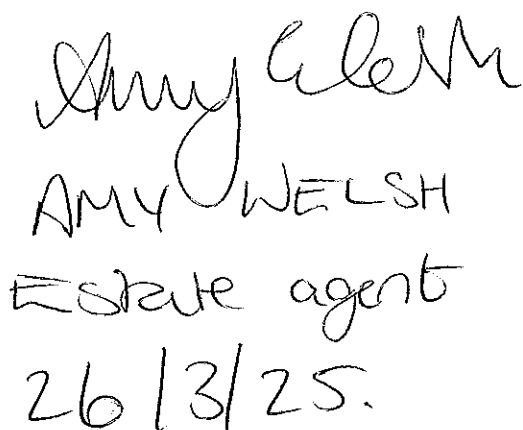 Amy Welsh
AMY WELSH
Estate agent
26/3/25.